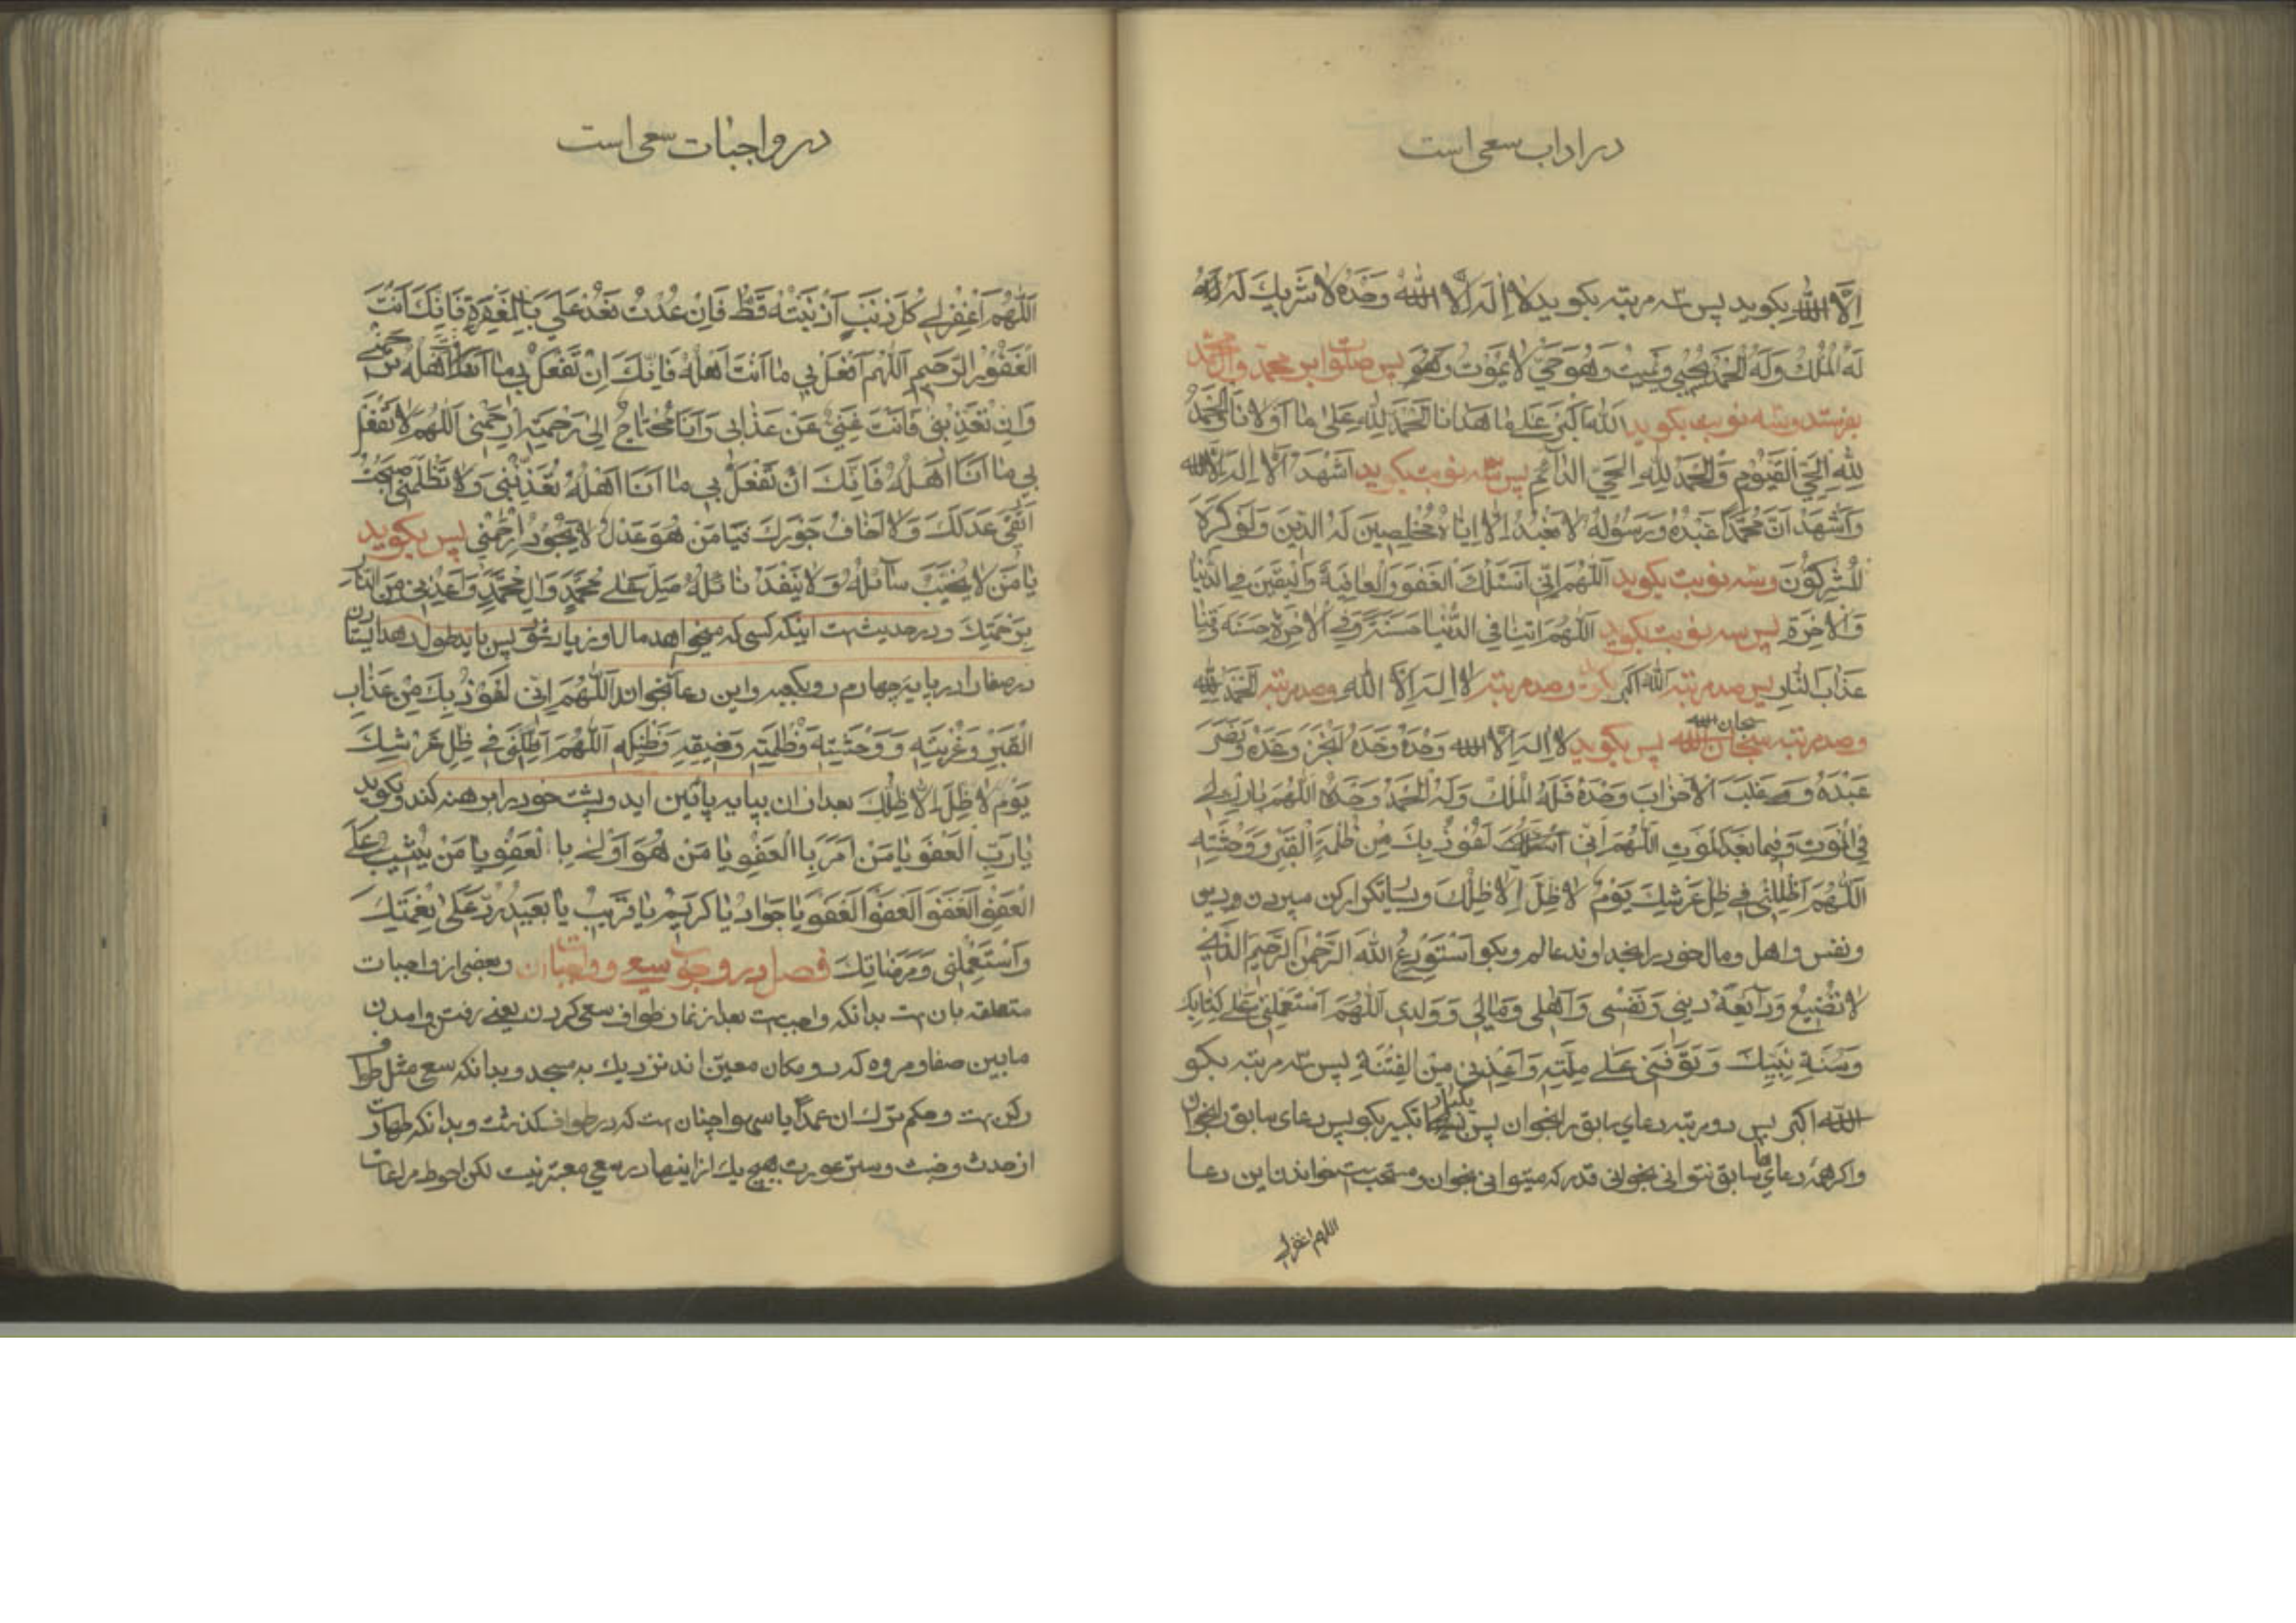 در اداب سعی است
اِلَّا اللّٰه بکوید پس سه مرتبه بکوید لا اِلٰهَ اِلَّا اللّٰه وَحْدَهُ لا شَرِیكَ لَهُ
لَهُ الْمُلْكُ وَلَهُ الْحَمْدُ یُحْیی وَیُمیتُ وَهُوَ حَیٌّ لا یَمُوتُ وَهُوَ پس صلوات بر محمد و آل محمد
بفرستد و سه نوبت بکوید اللّٰهُ اَکْبَرُ عَلی ما هَدانا اَلْحَمْدُ لِلّٰهِ عَلی ما اَوْلانا وَالْحَمْدُ
لِلّٰهِ الْحَیِّ الْقَیُّومِ وَالْحَمْدُ لِلّٰهِ الْحَیِّ الدّائِمِ پس سه نوبت بکوید اَشْهَدُ اَنْ لا اِلٰهَ اِلَّا اللّٰه
وَاَشْهَدُ اَنَّ مُحَمَّداً عَبْدُهُ وَرَسُولُهُ لا نَعْبُدُ اِلّا اِیّاهُ مُخْلِصینَ لَهُ الدّینَ وَلَوْ کَرِهَ
الْمُشْرِکُونَ و سه نوبت بکوید اَللّٰهُمَّ اِنّی اَسْئَلُكَ الْعَفْوَ وَالْعافِیَةَ وَالْیَقینَ فِی الدُّنْیا
وَالْاٰخِرَةِ پس سه نوبت بکوید اَللّٰهُمَّ اٰتِنا فِی الدُّنْیا حَسَنَةً وَفِی الْاٰخِرَةِ حَسَنَةً وَقِنا
عَذابَ النّارِ پس صد مرتبه اللّٰه اکبر بکوید و صد مرتبه لا اِلٰهَ اِلَّا اللّٰه و صد مرتبه اَلْحَمْدُ لِلّٰه
و صد مرتبه سبحان اللّٰه پس بکوید لا اِلٰهَ اِلَّا اللّٰه وَحْدَهُ وَحْدَهُ اَنْجَزَ وَعْدَهُ وَنَصَرَ
عَبْدَهُ وَغَلَبَ الْاَحْزابَ وَحْدَهُ فَلَهُ الْمُلْكُ وَلَهُ الْحَمْدُ وَحْدَهُ اَللّٰهُمَّ بارِكْ لی
فِی الْمَوْتِ وَفیما بَعْدَ الْمَوْتِ اَللّٰهُمَّ اِنّی اَعُوذُ بِكَ مِنْ ظُلْمَةِ الْقَبْرِ وَوَحْشَتِهِ
اَللّٰهُمَّ اَظِلَّنی فی ظِلِّ عَرْشِكَ یَوْمَ لا ظِلَّ اِلّا ظِلُّكَ و بسیار تکرار کن سپردن دین
و نفس و اهل و مال خود را بخداوند عالم و بکو اَسْتَوْدِعُ اللّٰهَ الرَّحْمٰنَ الرَّحیمَ الَّذی
لا تَضیعُ وَدائِعُهُ دینی وَنَفْسی وَاَهْلی وَمالی وَوَلَدی اَللّٰهُمَّ اسْتَعْمِلْنی عَلی کِتابِكَ
وَسُنَّةِ نَبِیِّكَ وَتَوَفَّنی عَلی مِلَّتِهِ وَاَعِذْنی مِنَ الْفِتْنَةِ پس سه مرتبه بکو
اللّٰه اکبر پس دو مرتبه دعای سابق را بخوان پس یکبار تکبیر بکو پس دعای سابق را بخوان
و اکر همه دعاهای سابق نتوانی بخوانی قدر که میتوانی بخوان و مستحب است خواندن این دعا
اللهم اغفر لی
در واجبات سعی است
اَللّٰهُمَّ اغْفِرْ لی کُلَّ ذَنْبٍ اَذْنَبْتُهُ قَطُّ فَاِنْ عُدْتُ فَعُدْ عَلَیَّ بِالْمَغْفِرَةِ فَاِنَّكَ اَنْتَ
الْغَفُورُ الرَّحیمُ اَللّٰهُمَّ افْعَلْ بی ما اَنْتَ اَهْلُهُ فَاِنَّكَ اِنْ تَفْعَلْ بی ما اَنْتَ اَهْلُهُ تَرْحَمْنی
وَاِنْ تُعَذِّبْنی فَاَنْتَ غَنِیٌّ عَنْ عَذابی وَاَنَا مُحْتاجٌ اِلی رَحْمَتِهِ ارْحَمْنی اَللّٰهُمَّ لا تَفْعَلْ
بی ما اَنَا اَهْلُهُ فَاِنَّكَ اَنْ تَفْعَلْ بی ما اَنَا اَهْلُهُ تُعَذِّبْنی وَلا تَظْلِمْنی اَصْبَحْتُ
اَتَّقی عَدْلَكَ وَلا اَخافُ جَوْرَكَ فَیا مَنْ هُوَ عَدْلٌ لا یَجُورُ اِرْحَمْنی پس بکوید
یا مَنْ لا یُخَیِّبُ سآئِلَهُ وَلا یَنْفَدُ نائِلُهُ صَلِّ عَلی مُحَمَّدٍ وَاٰلِ مُحَمَّدٍ وَاَعِذْنی مِنَ النّارِ
بِرَحْمَتِكَ و در حدیث است اینکه کسی که میخواهد مال او زیاد شود پس باید طول دهد ایستادن
در صفا را در پایه چهارم رو بکعبه و این دعا بخواند اَللّٰهُمَّ اِنّی اَعُوذُ بِكَ مِنْ عَذابِ
الْقَبْرِ وَغُرْبَتِهِ وَوَحْشَتِهِ وَظُلْمَتِهِ وَضیقِهِ وَضَنْكِهِ اَللّٰهُمَّ اَظِلَّنی فی ظِلِّ عَرْشِكَ
یَوْمَ لا ظِلَّ اِلّا ظِلُّكَ بعد از ان بپایه پائین اید و پشت خود را برهنه کند و بکوید
یا رَبِّ الْعَفْوِ یا مَنْ اَمَرَ بِالْعَفْوِ یا مَنْ هُوَ اَوْلی بِالْعَفْوِ یا مَنْ یُثیبُ عَلَی
الْعَفْوِ اَلْعَفْوَ اَلْعَفْوَ اَلْعَفْوَ یا جَوادُ یا کَریمُ یا قَریبُ یا بَعیدُ رُدَّ عَلَیَّ نِعْمَتَكَ
وَاسْتَعْمِلْنی وَمَرْضاتِكَ فصل در وجوب سعی و واجبات ان و بعضی از واجبات
متعلقه بان است بدانکه واجب است بعد از نماز طواف سعی کردن یعنی رفتن و امدن
مابین صفا و مروه که دو مکان معین اند نزدیك به مسجد و بدانکه سعی مثل طواف
رکن است و حکم ترك ان عمداً یا سهوا چنان است که در طواف کذشت و بدانکه طهارت
از حدث و خبث و ستر عورت هیچ یك از اینها در سعی معتبر نیست لکن احوط مراعات